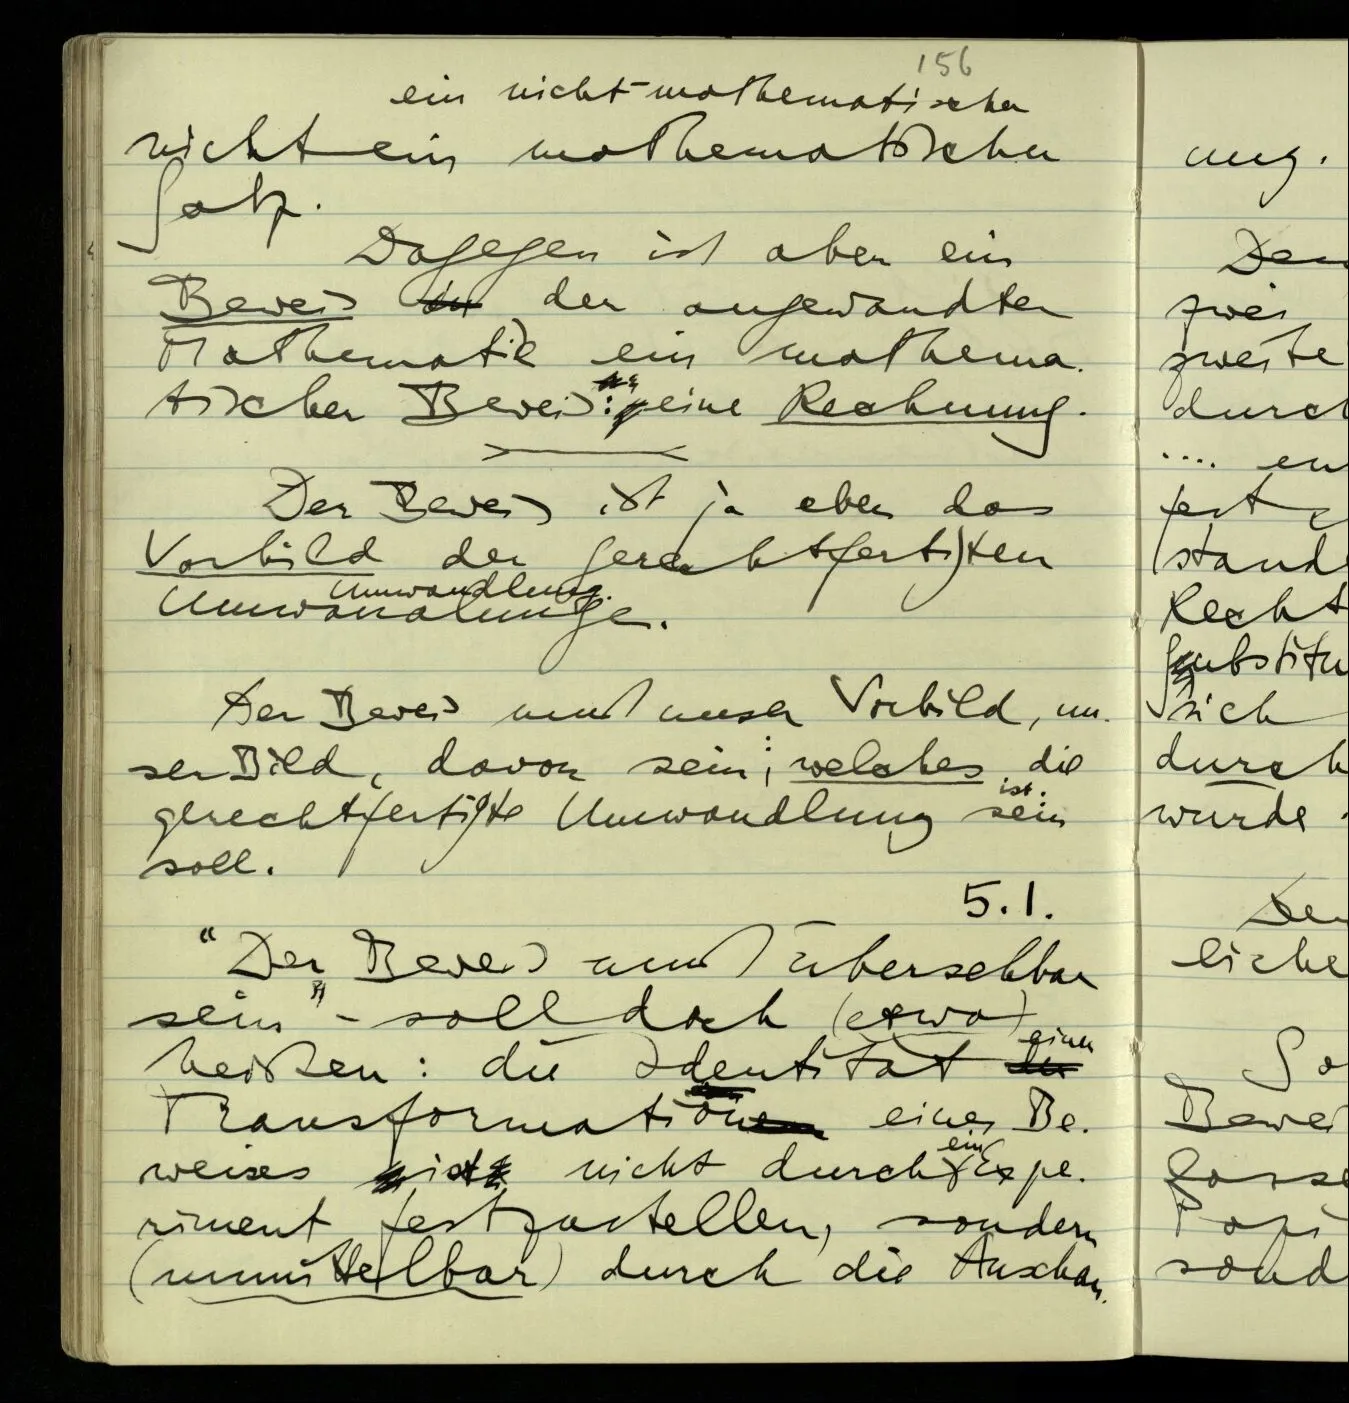 156
ein nicht-mathematischer
nicht ein mathematischer
Satz.
Dagegen ist aber ein
Beweis in der angewandten
Mathematik ein mathema-
tischer Beweis: eine Rechnung.
Der Beweis ist ja eben das
Vorbild der gerechtfertigten
Umwandlung.
Umwandlunge.
Der Beweis muß unser Vorbild, un-
ser Bild, davon sein; welches die
ist.
gerechtfertigte Umwandlung sein
soll.
5.1.
"Der Beweis muß übersehbar
sein" – soll doch (etwa)
einer
heißen: die Identität der
Transformationen eines Be-
ein
weises ist nicht durch Expe-
riment festzustellen, sondern
(unmittelbar) durch die Anschau-
ung.
Den
zwei
zweite
durch
.... en
fest
stand
Recht
substitu
sich
durch
wurde
Den
liche
So
Bewei
Papi
sond